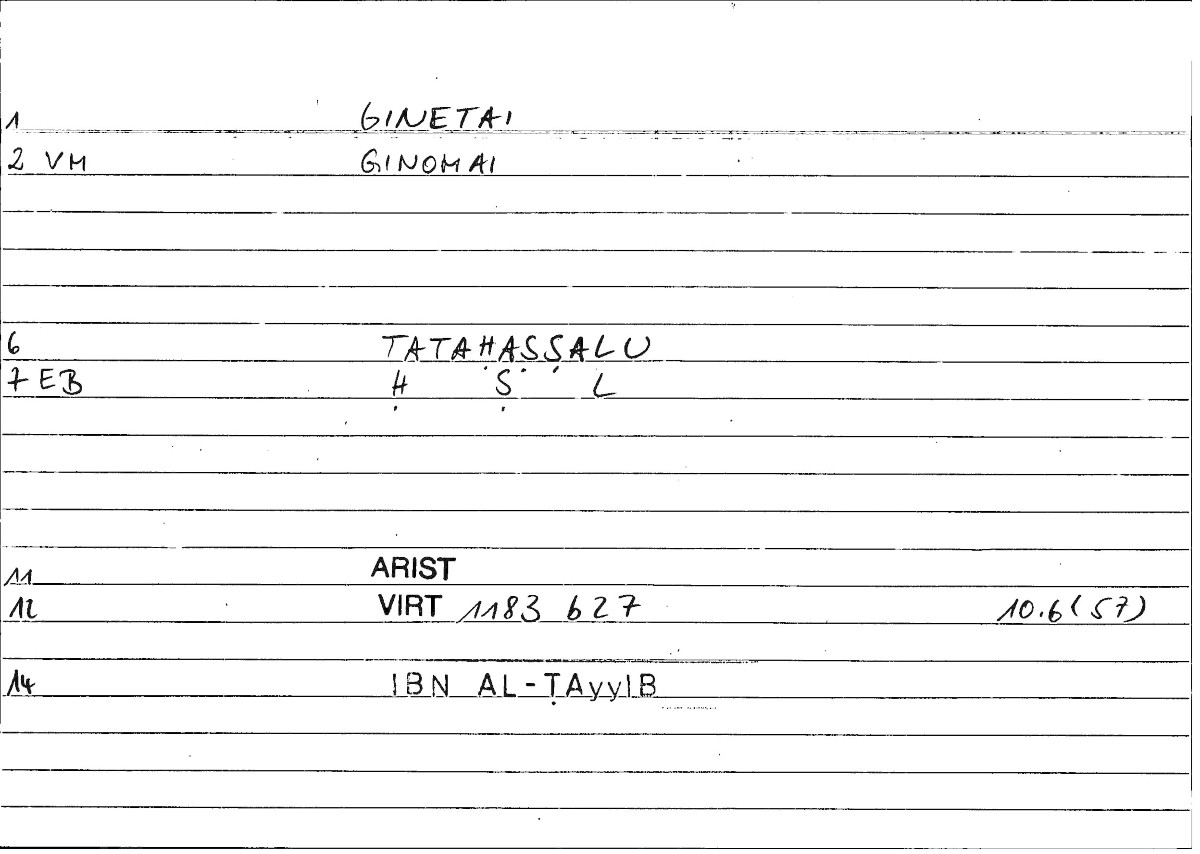 1 GINETAI
2 VM GINOMAI
6 TATAḤAṢṢALU
7 EB Ḥ Ṣ L
11 ARIST
12 VIRT 1183 b 27 10.6(57)
14 IBN AL-ṬAyyIB